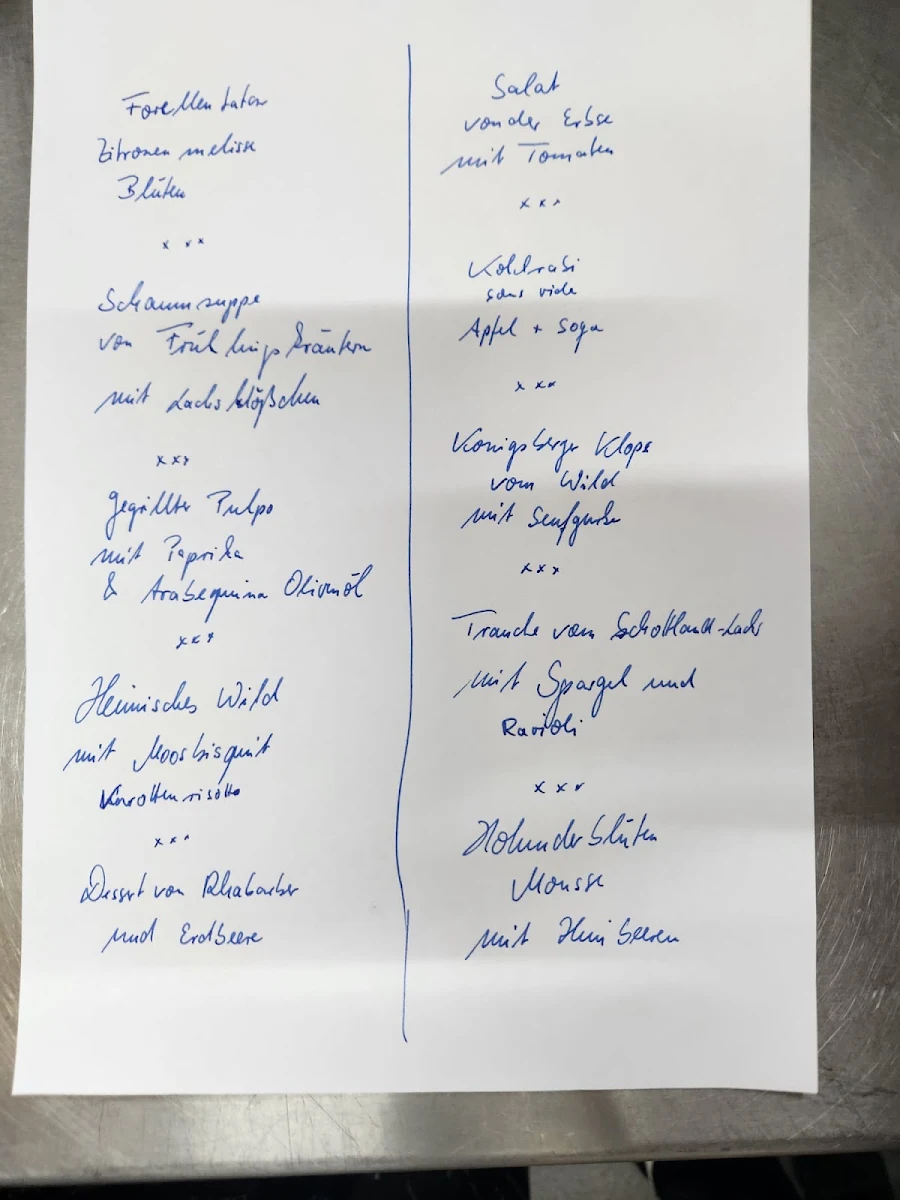 Forellentatar
Zitronenmelisse
Blüten
x x x
Schaumsuppe
von Frühlingskräutern
mit Lachsklößchen
x x x
gegrillter Pulpo
mit Paprika
& Arabequina Olivenöl
x x x
Heimisches Wild
mit Moosbisquit
Karottenrisotto
x x x
Dessert von Rhabarber
und Erdbeere
Salat
von der Erbse
mit Tomaten
x x x
Kohlrabi
sous vide
Apfel + Soya
x x x
Königsberger Klops
vom Wild
mit Senfgurke
x x x
Tranche vom Schottland-Lachs
mit Spargel und
Ravioli
x x x
Holunderblüten
Mousse
mit Himbeeren